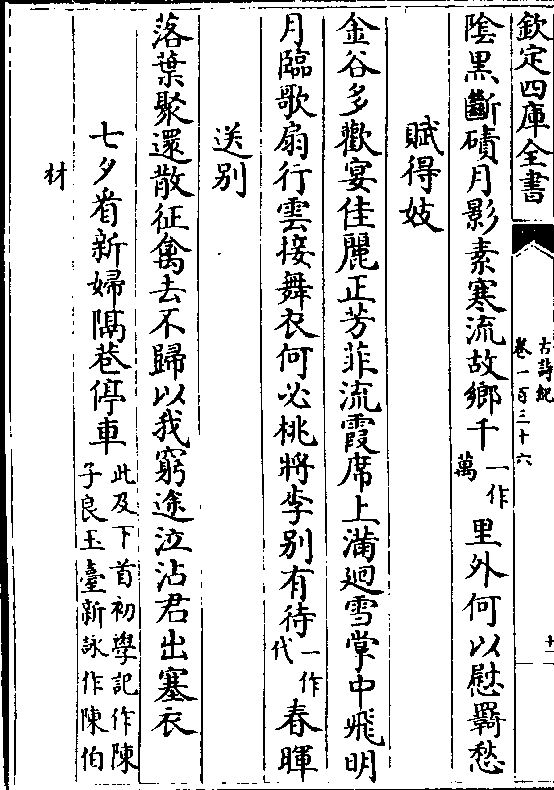 欽定四庫全書
古詩紀
卷一百三十六
十一
陰黑斷磧月影素寒流故鄉千一作萬里外何以慰羈愁
賦得妓
金谷多歡宴佳麗正芳菲流霞席上滿廻雪掌中飛明
月臨歌扇行雲接舞衣何必桃將李别有待一作代春暉
送别
落葉聚還散征禽去不歸以我窮途泣沾君出塞衣
七夕看新婦隔巷停車此及下首初學記作陳子良玉臺新詠作陳伯
材